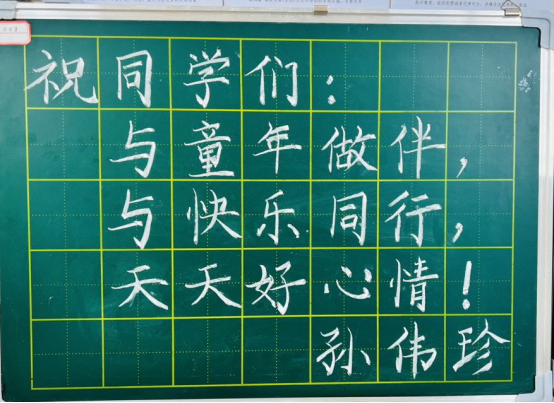 祝同学们：
与童年做伴，
与快乐同行，
天天好心情！
孙伟珍